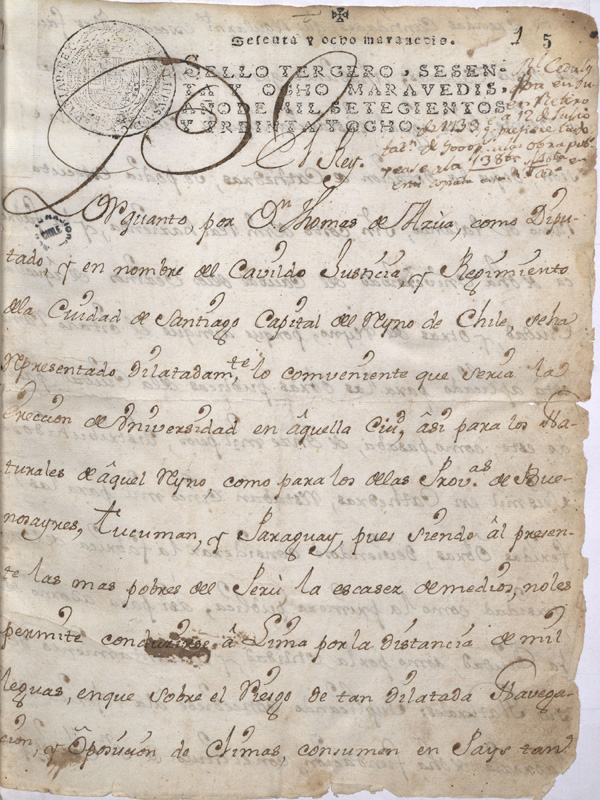 Sesenta y ocho maravedis.
1 5
SELLO TERCERO, SESEN-
TA Y OCHO MARAVEDIS,
AÑO DE MIL SETECIENTOS
Y TREINTA Y OCHO.
El Rey.
Por quanto, por Dn. Thomas de Azua, como Dipu-
tado, y en nombre del Cavildo Justicia, y Regimiento
della Ciudad de Santiago Capital del Reyno de Chile, se ha
Representado dilatadamte. lo combeniente que seria la
ereccion de Universidad en aquella Ciud. asi para los Na-
turales de aquel Reyno como para los delas Provas. de Bue-
nosayres, Tucuman, y Paraguay, pues siendo al presen-
te las mas pobres del Perù la escasez de medios, noles
permite conducirse à Lima por la distancia de mil
leguas, enque sobre el Riesgo de tan dilatada Navega-
ción, y Oposicion de Climas, consumen en Pays tan